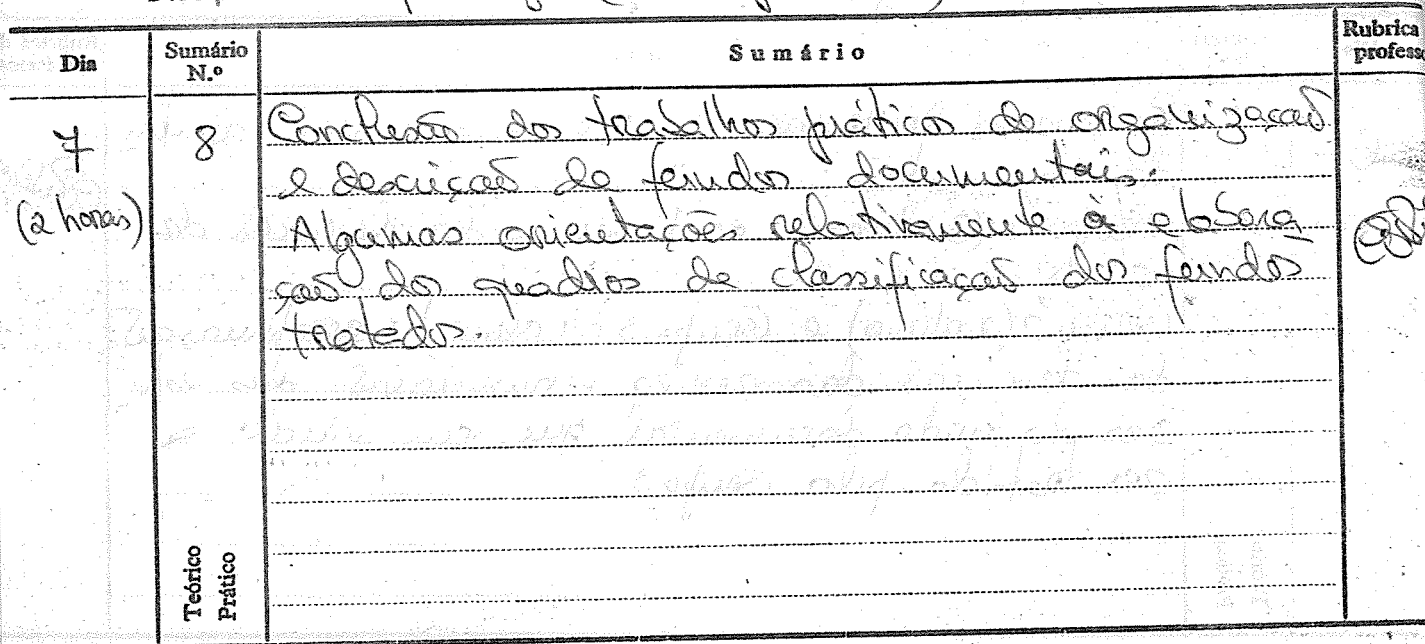 Dia
Sumário
N.º
Sumário
Rubrica
profess
7
(2 horas)
8
Conclusão dos trabalhos práticos de organização
e descrição de fundos documentais.
Algumas orientações relativamente à elabora
ção dos quadros de classificação dos fundos
tratados.
Teórico
Prático